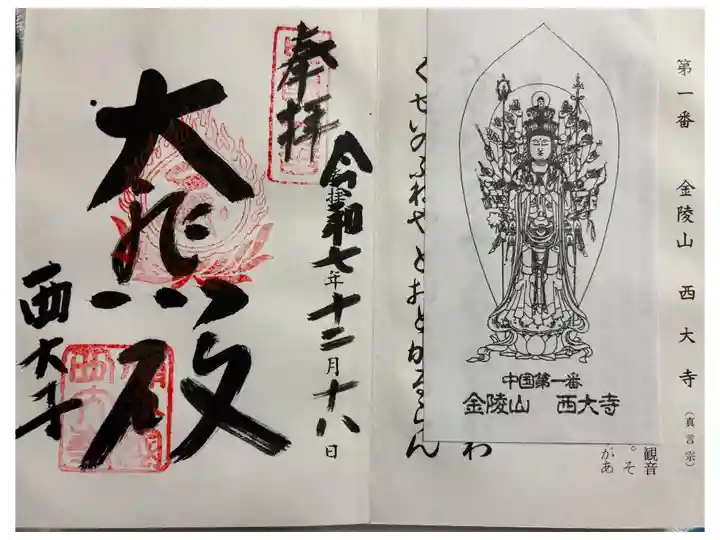 第一番 金陵山 西大寺（真言宗）
観音
。そ
があ
中国第一番
金陵山 西大寺
わ
くせいのふねや
奉拝
令和七年十二月十八日
大悲殿
西大寺